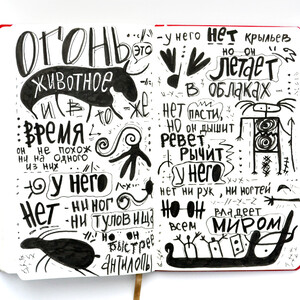 ОГОНЬ
это
ЖИВОТНОЕ
И В то же
ВРЕМЯ
он не похож
ни на одного
из них
у него
НЕТ - ни ног
- ни туловища
но он
быстрее
антилопы
- у него НЕТ крыльев
но он
летает
В ОБЛАКАХ
НЕТ пасти,
НО он дышит
РЕВЕТ
РЫЧИТ
у него
нет ни рук, ни ногтей
НО ОН владеет
всем МИРОМ